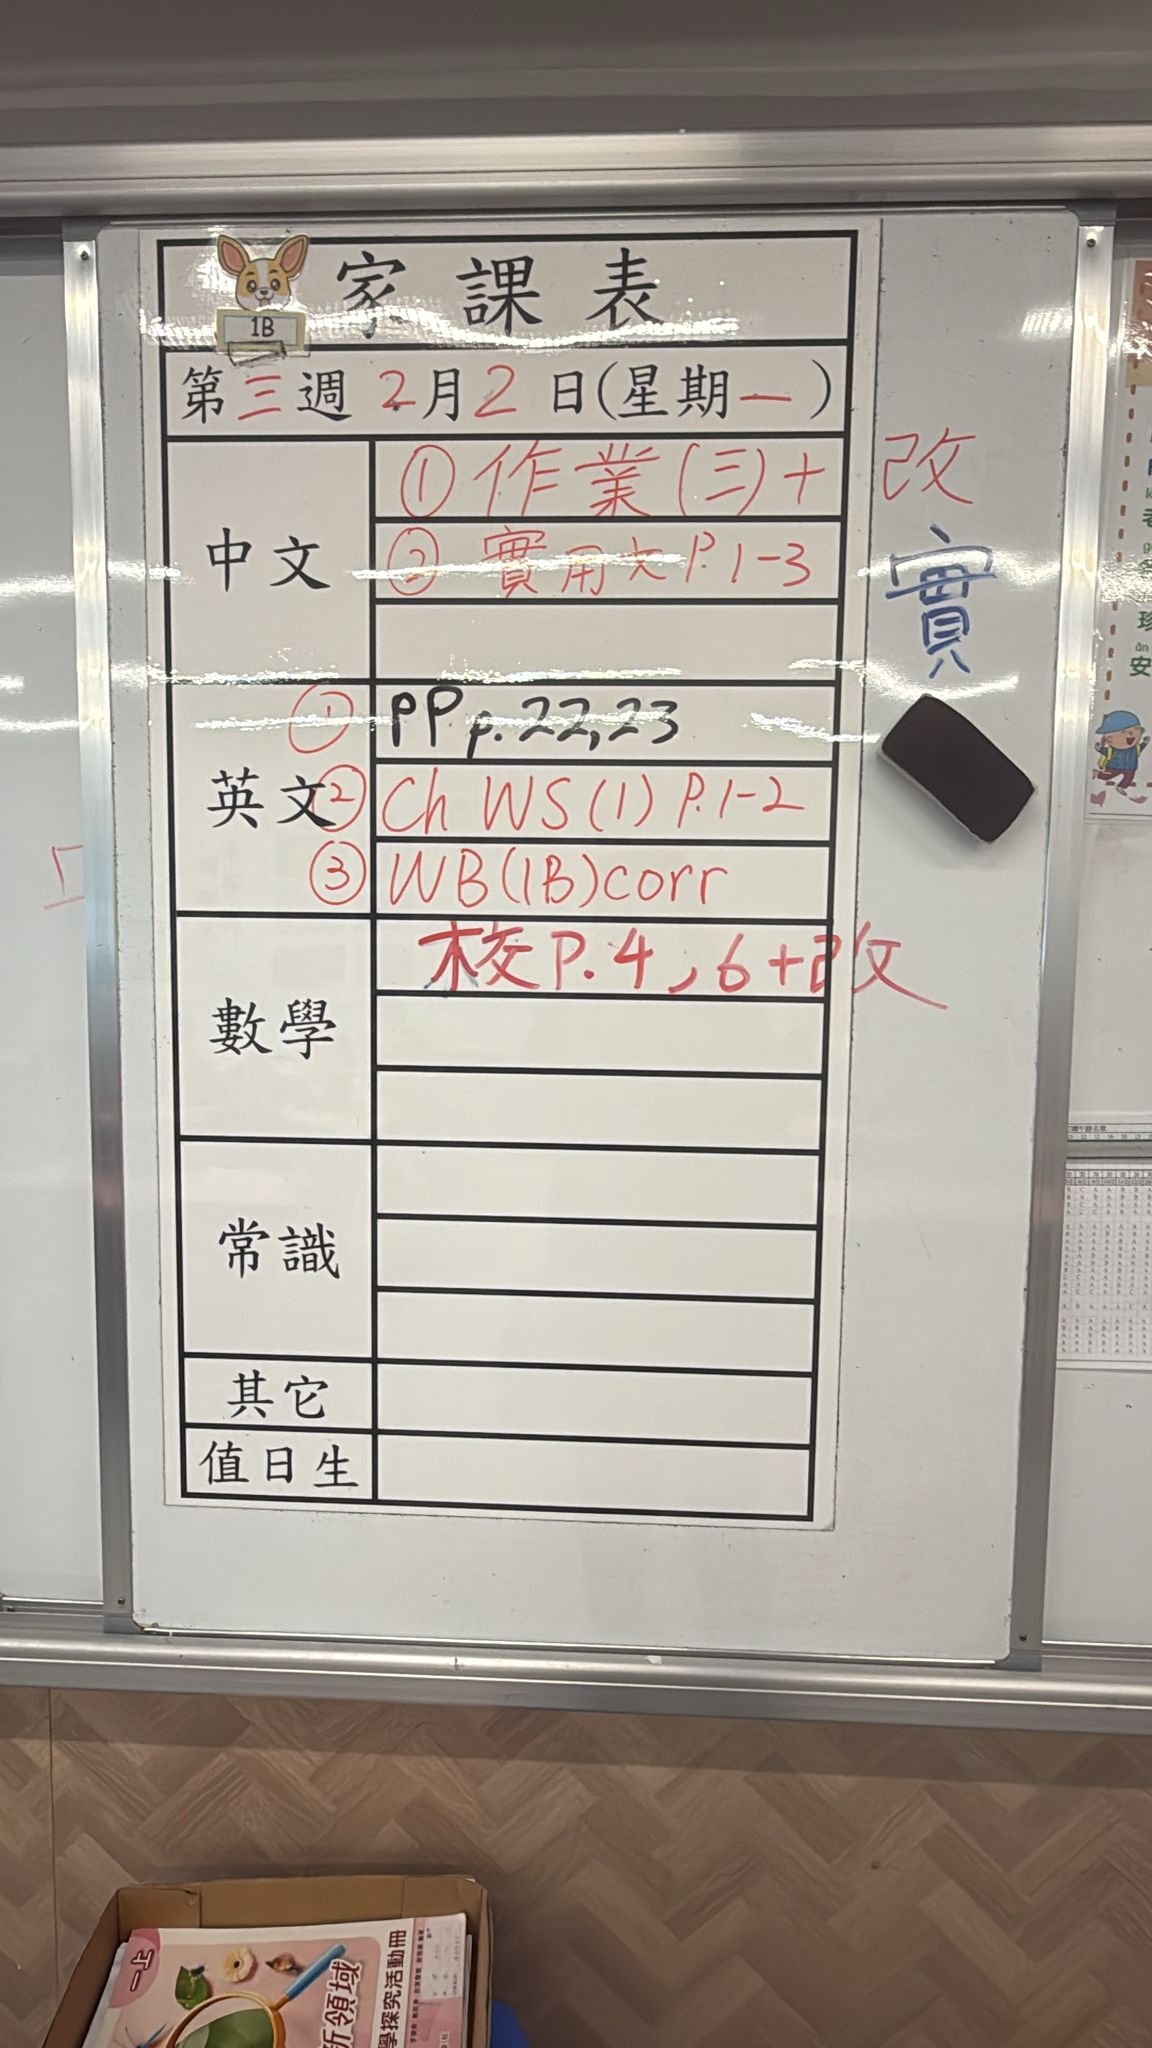 家課表
1B
第三週 2月2日(星期一)
中文
① 作業(三)+改
② 實用文 P.1-3
實
英文
① PP p.22,23
② Ch WS(1) P.1-2
③ WB(1B)corr
數學
校 P.4,6+改
常識
其它
值日生
珍
安
一上
新領域
學探究活動冊